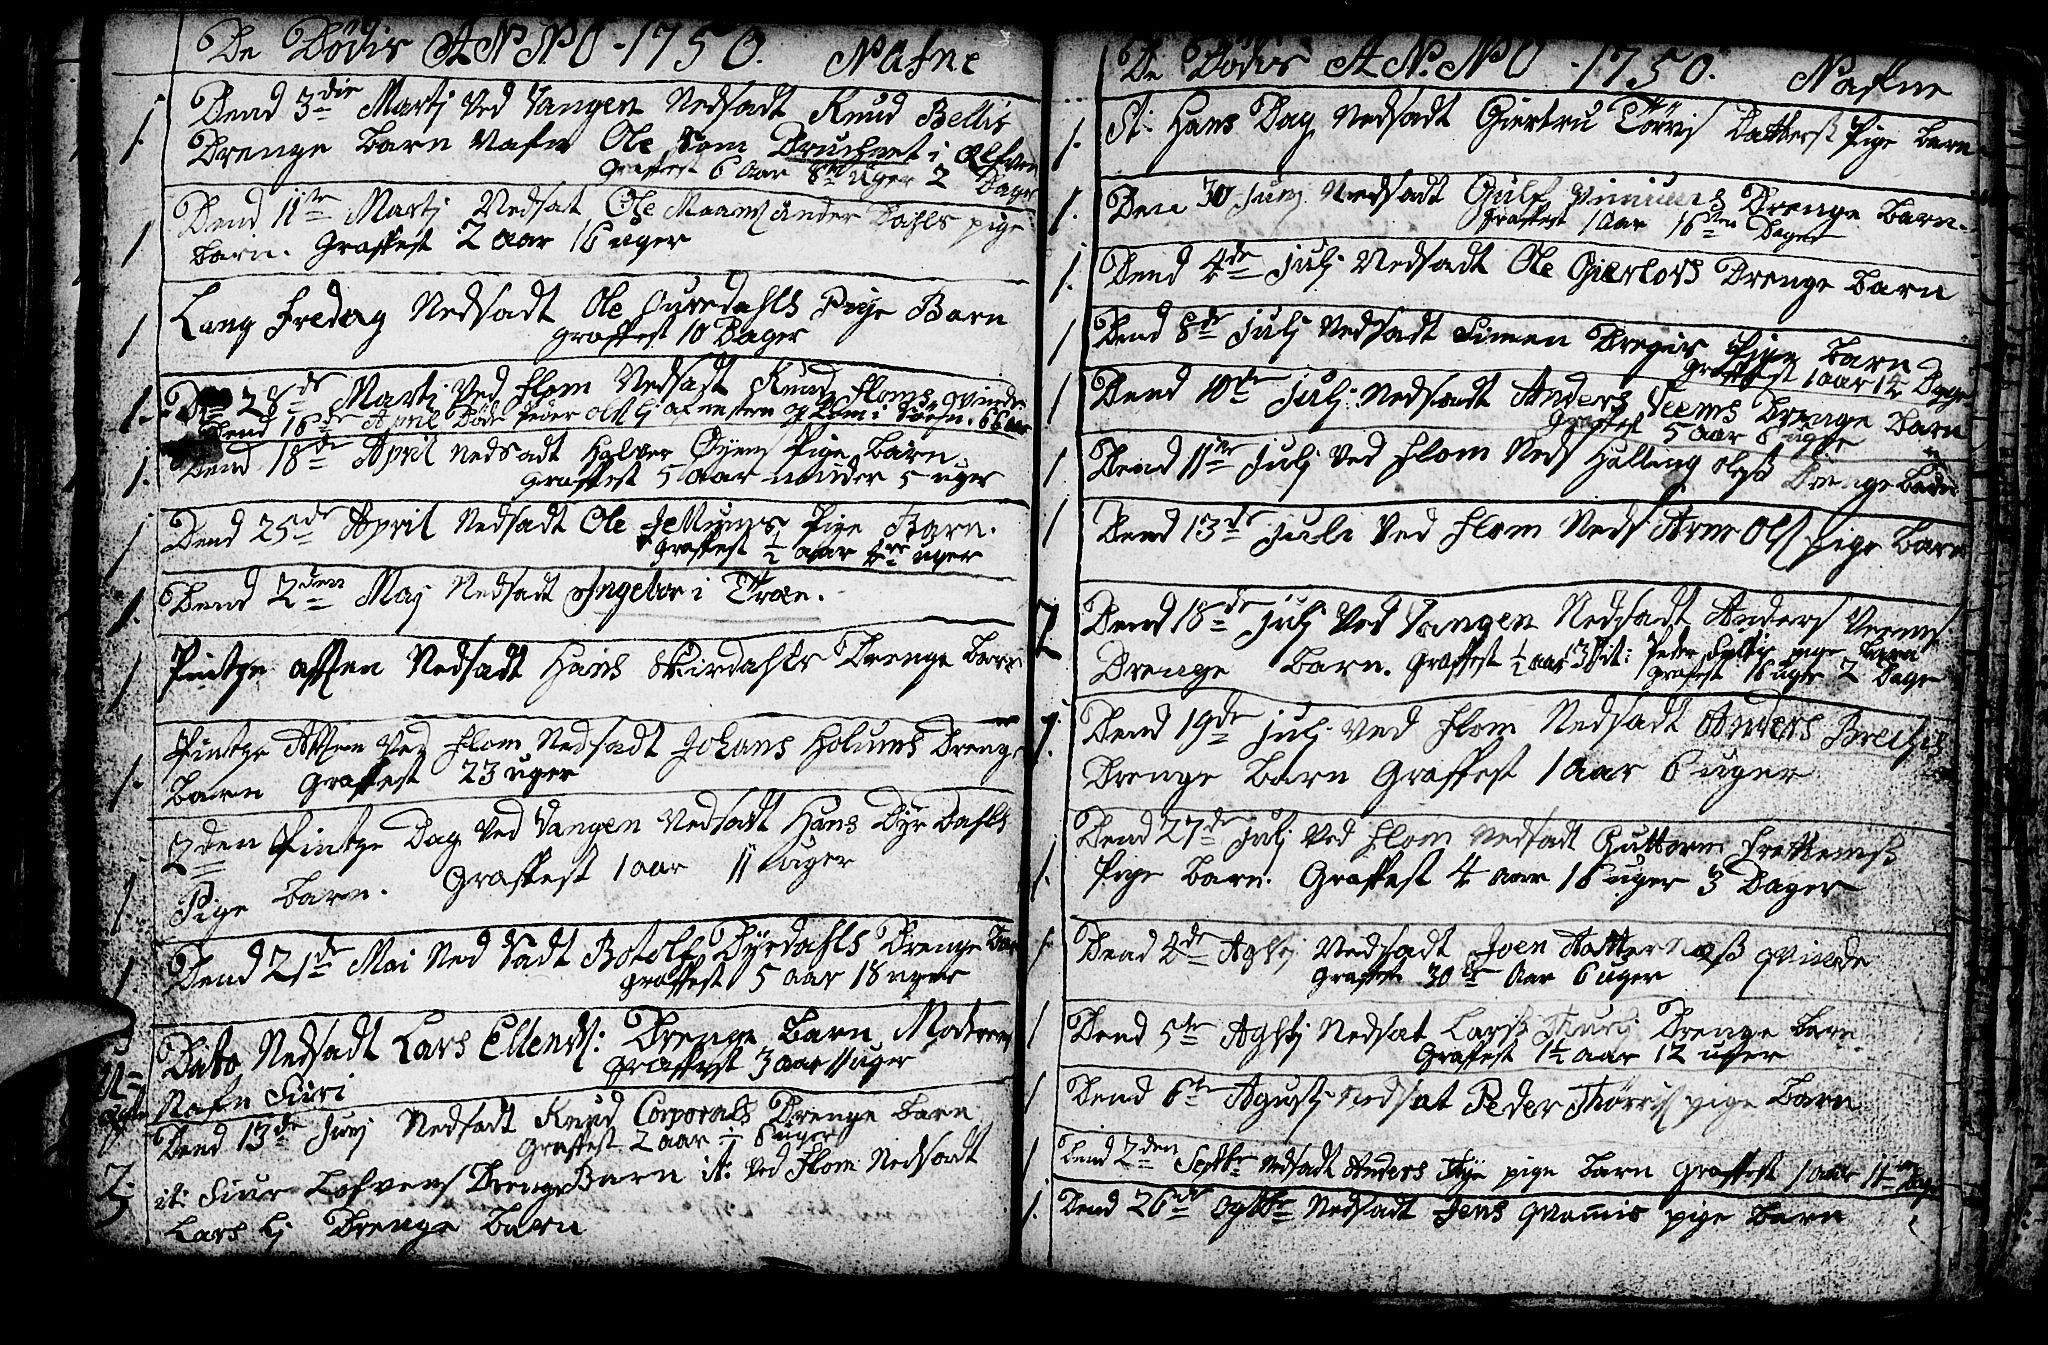 De Dödes ANNO-1750. Nafne
1. Dend 3die Martj ved Vangen Nedsadt Knud Bellis
Drenge Barn Nafn Ole som Druchnet i Elfven
Graffest 6 Aar 8te Uger 2 Dage
1 Dend 11te Martj Nedsat Ole Maans under Dahls pige
barn. Graffest 2 aar 16 uger
1 Lang Fredag Nedsadt Ole Ouredahls Pige Barn
graffest 10 Dager
1. 28de Martj ved Flom Nedsadt Knud Floms qvinde
Dend 16de April Döde Peder i 66 aar
1. Dend 18de April Nedsadt Halvor Öyens Pige Barn
graffest 5 aar minder 5 uger
1 Dend 25de April Nedsadt Ole Pige Barn.
graffest ½ aar uger
1. Dend 2den Maj Nedsadt Ingebor i Træn.
1 Pintze afften Nedsadt Hans Skirdahls Drenge Barn
1. Pintze Aften ved Flom Nedsadt Johans Holums Drenge
barn graffest 23 uger
1 2den Pintze Dag ved Vangen Nedsadt Hans Dyrdahls
Pige barn. Graffest 1 aar 11 uger
1 Dend 21de Mai Nedsadt Botolf Dÿrdahls Drenge Barn
graffest 5 aar 18 uger
Dato Nedsadt Lars Ellends: Drenge Barn Moderens
graffest 3 aar 11 uger
Nafn Siri
Dend 13de Junj Nedsadt Knud Corporals Drenge Barn
Graffest 2 aar 6 uger
2. it: Siur Lofvens Drenge Barn it: ved Flom Nedsadt
Lars Lj Drenge Barn
De Dödes ANNO-1750. Nafne
1. St: Hans Dag Nedsadt Giertru Törris Datters Pige Barn
1. Den 30 Junj Nedsadt Gulf Drenge Barn.
Graffest 1 Aar 16ten Dager
1. Dend 4de Julj Nedsadt Ole Gierlovs Drenge Barn
1 Dend 8de Julj Nedsadt Simen Pige Barn
Graffest 1 aar 12 Dage
1 Dend 10de Julj Nedsadt Anders Veems Drenge Barn
Graffest 5 Aar 8 uger
1 Dend 11te Julj ved Flom Neds Halling Olss Drenge Barn
1 Dend 13de Juli ved Flom Neds Arne Ols Pige Barn
2 Dend 18de Julj ved Vangen Nedsadt Anders Veems
Drenge Barn. Graffest ½ aar 3 it: Peder pige Barn
Graffest 16 uger 2 Dage
1. Dend 19de Julj ved Flom Nedsadt Anders
Drenge Barn Graffest 1 Aar 6 uger
1. Dend 27de Julj ved Flom Nedsadt Guttorm Frettems
Pige Barn. Graffest 4 aar 16 uger 3 Dager
1 Dend 2de Nedsadt Joen qvinde
Graffest 30 Aar 6 uger
1 Dend 5te Nedsat Lars Drenge Barn
Graffest 1½ aar 12 uger
1 Dend 6te Agustj Nedsat Peder Thörris pige Barn
1 Dend 2den Septbr Nedsadt Anders pige Barn Graffest 1 aar 11
1. Dend 26de Nedsadt Jens pige Barn